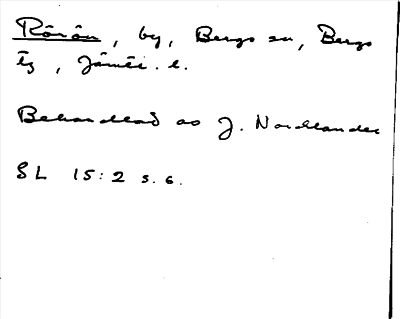 Rörön, by, Bergs sn, Bergs
tg, Jämtl. l.
Behandlad av J. Nordlander
SL 15:2 s. 6.